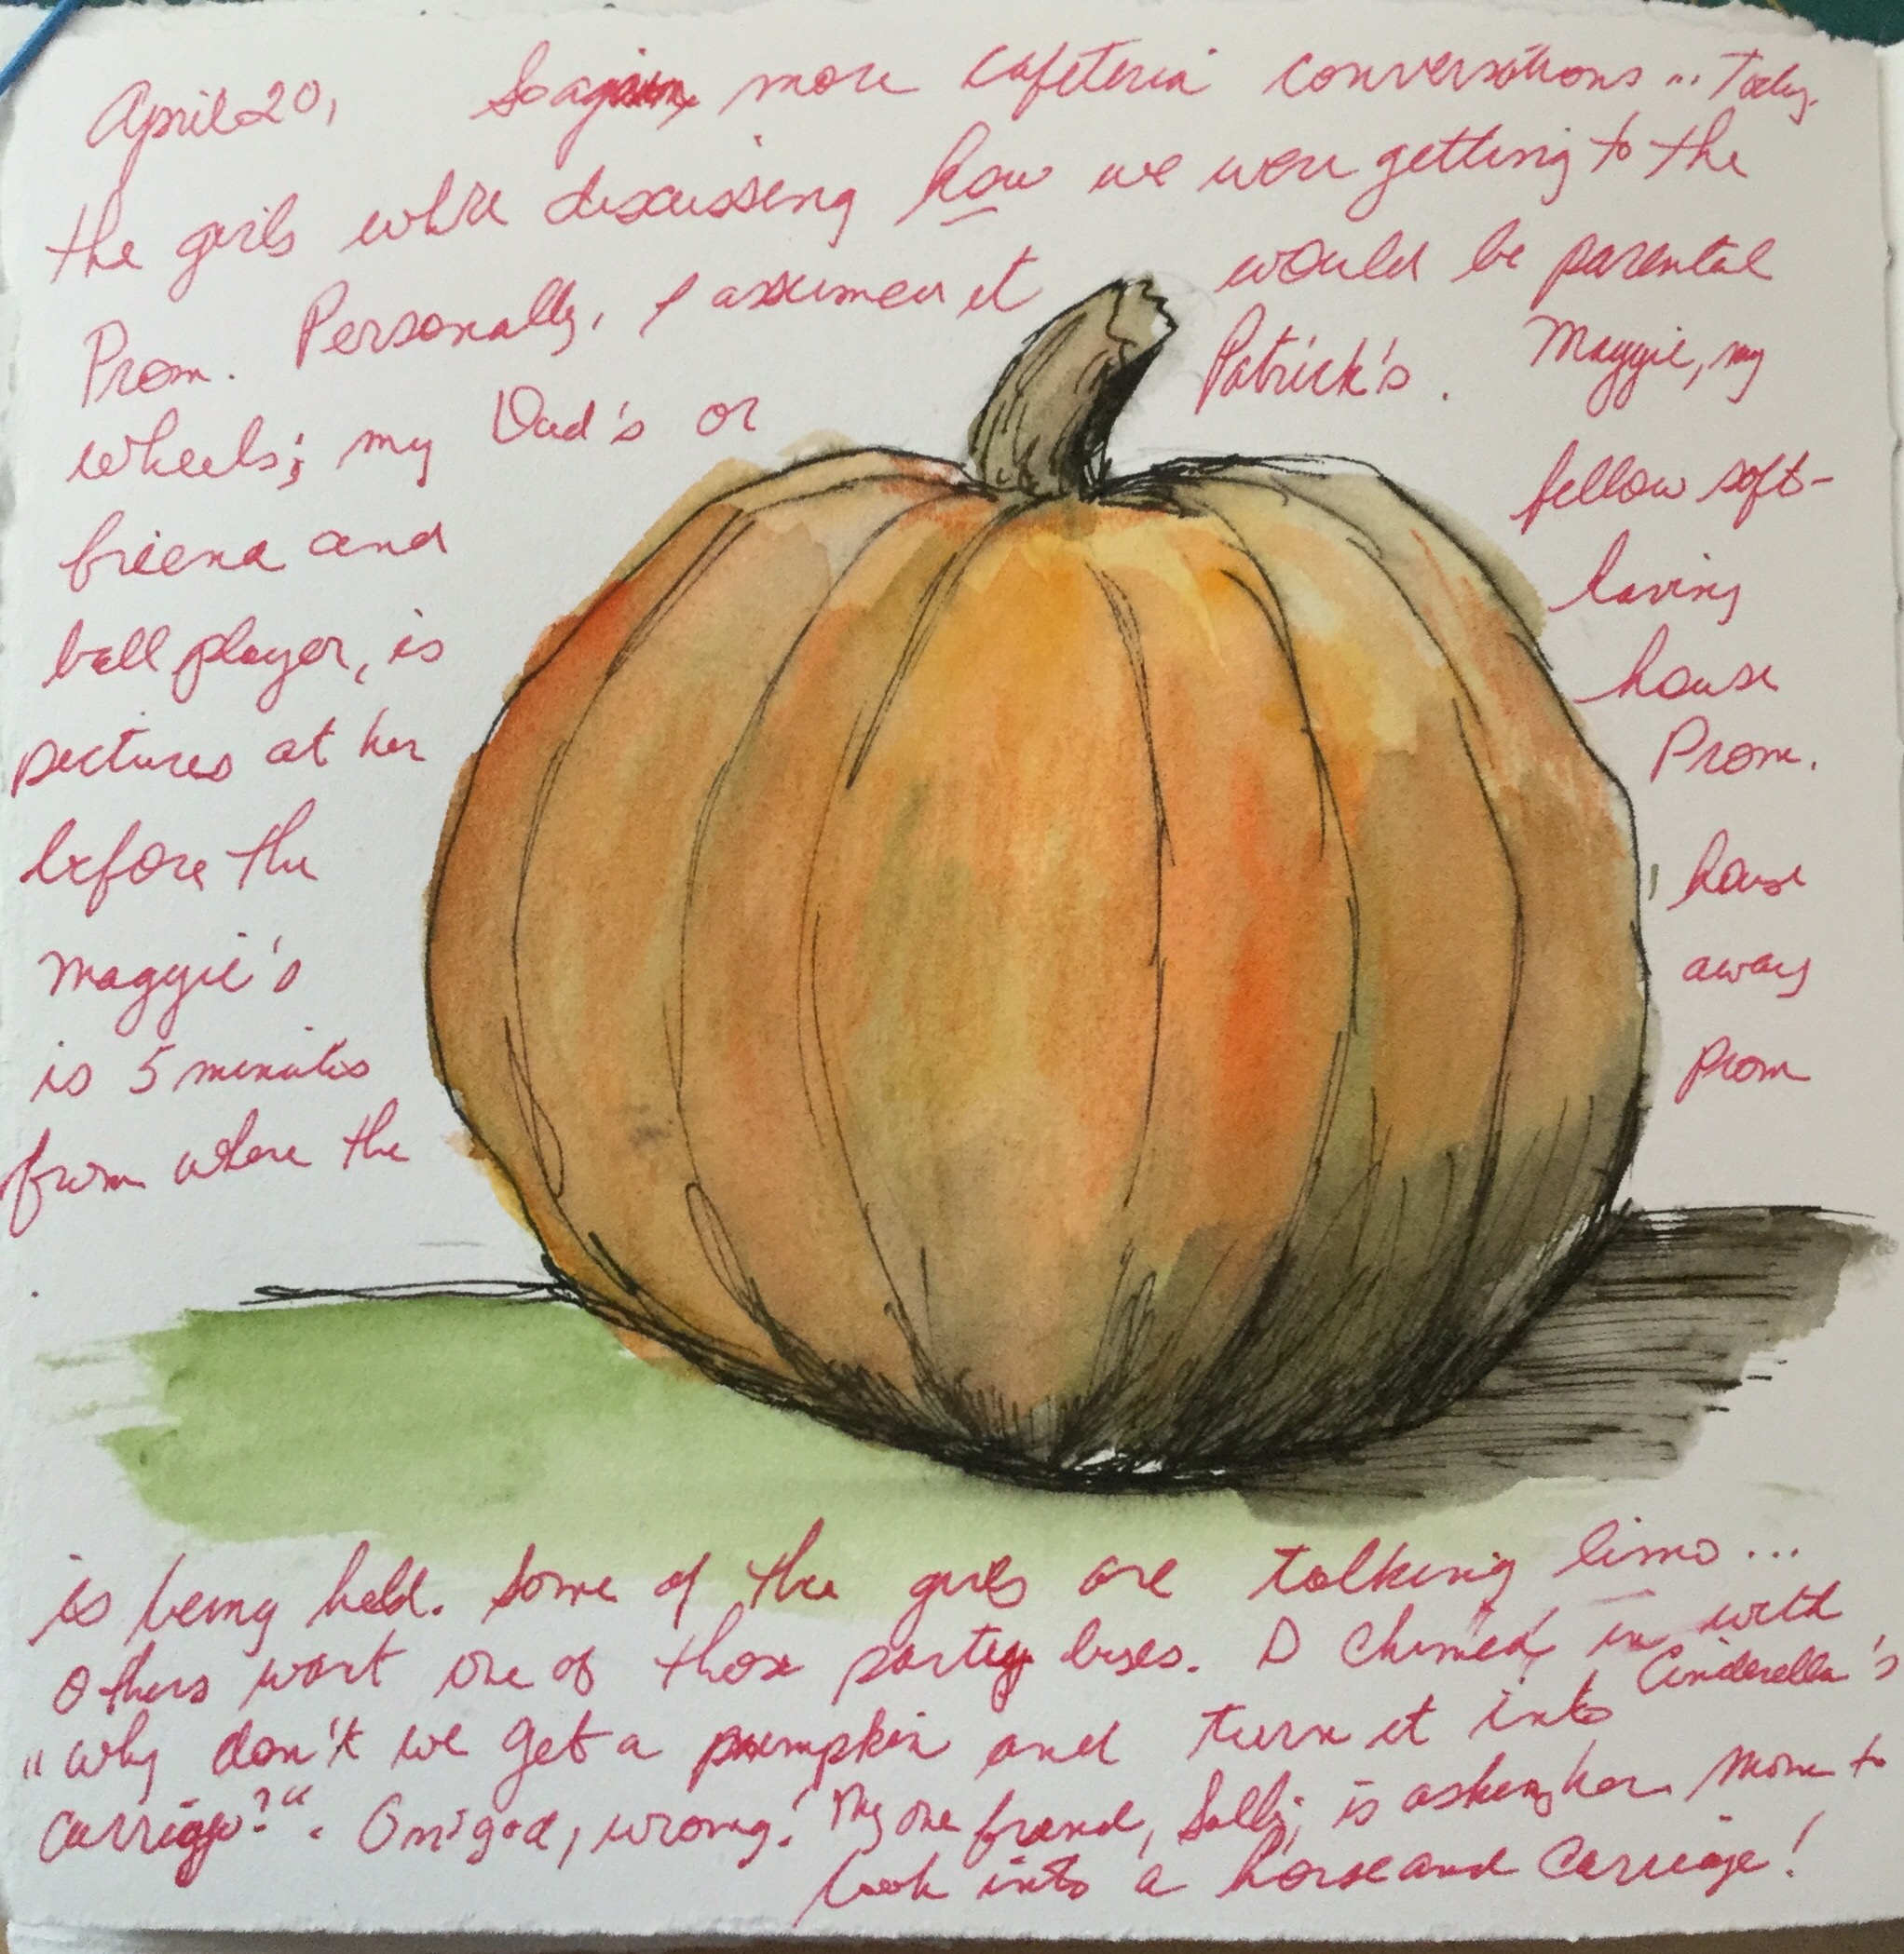 April 20, So again, more cafeteria conversations... Today,
the girls where discussing how we were getting to the
Prom. Personally, I assumed it would be parental
wheels; my Dad's or Patrick's. Maggie, my
friend and fellow soft-
ball player, is having
pictures at her house
before the Prom.
Maggie's house
is 5 minutes away
from where the prom
is being held. Some of the girls are talking limo...
Others want one of those party buses. I chimed in with
"why don't we get a pumpkin and turn it into Cinderella's
carriage?". Omigod, wrong! My one friend, Sally, is asking her Mom to
look into a horse and carriage!